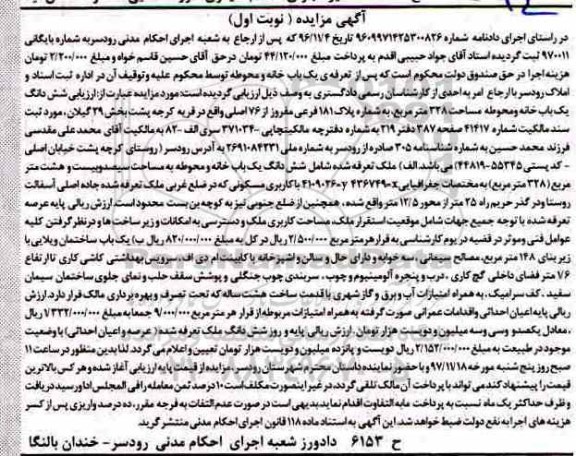 آگهی مزایده ( نوبت اول)
در راستای اجرای دادنامه شماره ۹۶۰۹۹۷۱۴۲۵۳۰۰۸۲۶ تاریخ ۹۶/۱۱/۴ که پس از ارجاع به شعبه اجرای احکام مدنی رودسر به شماره بایگانی
۹۷۰۰۱۱ ثبت گردیده استاد آقای جواد حبیبی اقدم به پرداخت مبلغ ۴۴/۱۳۰/۰۰۰ تومان درحق آقای حسین قاسم خواه و مبلغ ۲/۲۰۰/۰۰۰ تومان
هزینه اجرا در حق صندوق دولت محکوم است که پس از تعرفه ی یک باب خانه و محوطه توسط محکوم علیه و توقیف آن در اداره ثبت اسناد و
املاک رودسر با ارجاع امر به احدی از کارشناسان رسمی دادگستری به وصف ذیل ارزیابی گردیده است: مورد مزایده عبارت از: ارزیابی شش دانگ
یک باب خانه ومحوطه مساحت ۳۲۸ متر مربع، به شماره پلاک ۱۸۱ فرعی مفروز از ۷۶ اصلی واقع در قریه کرجه پشت بخش ۲۹ گیلان، مورد ثبت
سند مالکیت شماره ۴۱۴۱۷ صفحه ۳۸۷ دفتر ۲۱۹ به شماره دفترچه مالکیتچاپی ۳۷۱۰۳۴- سری الف ۸۲- به مالکیت آقای محمد علی مقدسی
فرزند محمد حسین به شماره شناسنامه ۳۰۵ صادره از رودسر به شماره ملی ۲۶۹۱۰۸۴۲۳۱ به آدرس رودسر ( روستای کرچه پشت خیابان اصلی
- کد پستی ۵۵۳۴۵-۴۴۸۱۹) می باشد. الف) ملک تعرفه شده شامل شش دانگ یک باب خانه و محوطه به مساحت سیصدوبیست و هشت متر
مربع (۳۲۸ متر مربع) به مختصات جغرافیایی با کاربری مسکونی که در ضلع غربی ملک تعرفه شده جاده اصلی آسفالت
روستا ودر گذر حریم راه ۲۵ متر از محور ۱۲/۵ متر واقع شده ، همچنین از ضلع جنوبی نیز به کوچه بن بست محدود است. ارزش ریالی پایه عرصه
تعرفه شده با توجه جمیع جهات شامل موقعیت استقرار ملک، مساحت کاربری ملک و دسترسی به امکانات و زیر ساخت ها و در نظر گرفتن کلیه
عوامل فنی وموثر در قضیه در یوم کارشناسی به قرار هر متر مربع ۲/۵۰۰/۰۰۰ ریال در کل به مبلغ ۸۳۰/۰۰۰/۰۰۰ ریال ب) یک باب ساختمان ویلایی با
زیر بنای ۱۴۸ متر مربع، مصالح سیمانی، سه خوابه و دارای حال و سالن و آشپزخانه با کابینت ام دی اف، سرویس بهداشتی کاشی کاری تا ارتفاع
۷۶ متر فضای داخلی گچ کاری ، درب و پنجره آلومینیوم و چوب ، سربندی چوب جنگلی و پوشش سقف حلب و نمای جلوی ساختمان سیمان
سفید ، کف سرامیک، به همراه امتیازات آب و برق و گاز شهری با قدمت ساخت هشت ساله که تحت تصرف و بهره برداری مالک قرار دارد. ارزش
ریالی پایه اعیان احداثی واقدامات عمرانی صورت گرفته به همراه امتیازات مربوطه از قرار هر متر مربع ۹/۰۰۰/۰۰۰ جمعا به مبلغ ۱/۳۳۲/۰۰۰/۰۰۰ ریال
، معادل یکصدو وسی وسه میلیون و دویست هزار تومان. ارزش ریالی پایه و روز شش دانگ ملک تعرفه شده ( عرصه و اعیان احداثی) با وضعیت
موجود در طبیعت به مبلغ ۲/۱۵۲/۰۰۰/۰۰۰ ریال دویست و پانزده میلیون و دویست هزار تومان تعیین و اعلام می گردد. لذا بدین منظور در ساعت ۱۱
صبح روز پنج شنبه مورخه ۹۷/۱۱/۱۸ و با حضور نماینده دادستان محترم شهرستان رودسر ، مزایده از قیمت پایه ارزیابی آغاز شده و هر کس بالاترین
قیمت را پیشنهاد کند می تواند با پرداخت آن مالک تلقی گردد، در غیر اینصورت مکلف است ۱۰ درصد ثمن معامله را فی المجلس ادا و رسید دریافت
و ظرف حداکثر یک ماه نسبت به پرداخت مابه التفاوت اقدام نماید بدیهی است در صورت عدم التفات به فرجه مقرر، ده درصد واریزی پس از کسر
هزینه های اجرا به نفع دولت ضبط خواهد شد. این آگهی به استناد ماده ۱۱۸ قانون اجرای احکام مدنی منتشر گردید.
ح ۶۱۵۳ دادورز شعبه اجرای احکام مدنی رودسر- خندان بالنگا